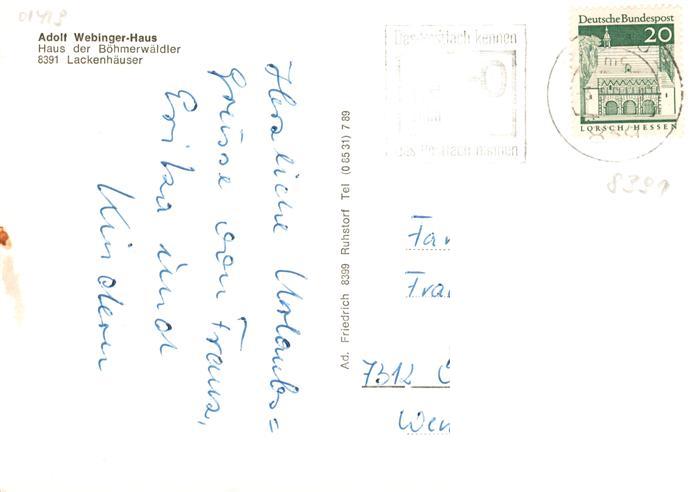 01419
Adolf Webinger-Haus
Haus der Böhmerwäldler
8391 Lackenhäuser
Herzliche Urlaubs=
Grüsse von Franz,
Erika und
Kindern
Ad. Friedrich 8399 Ruhstorf Tel (0 85 31) 7 89
Postfach kennen
Deutsche Bundespost
20
LORSCH/HESSEN
8391
Fam
Fra
7312
Wen